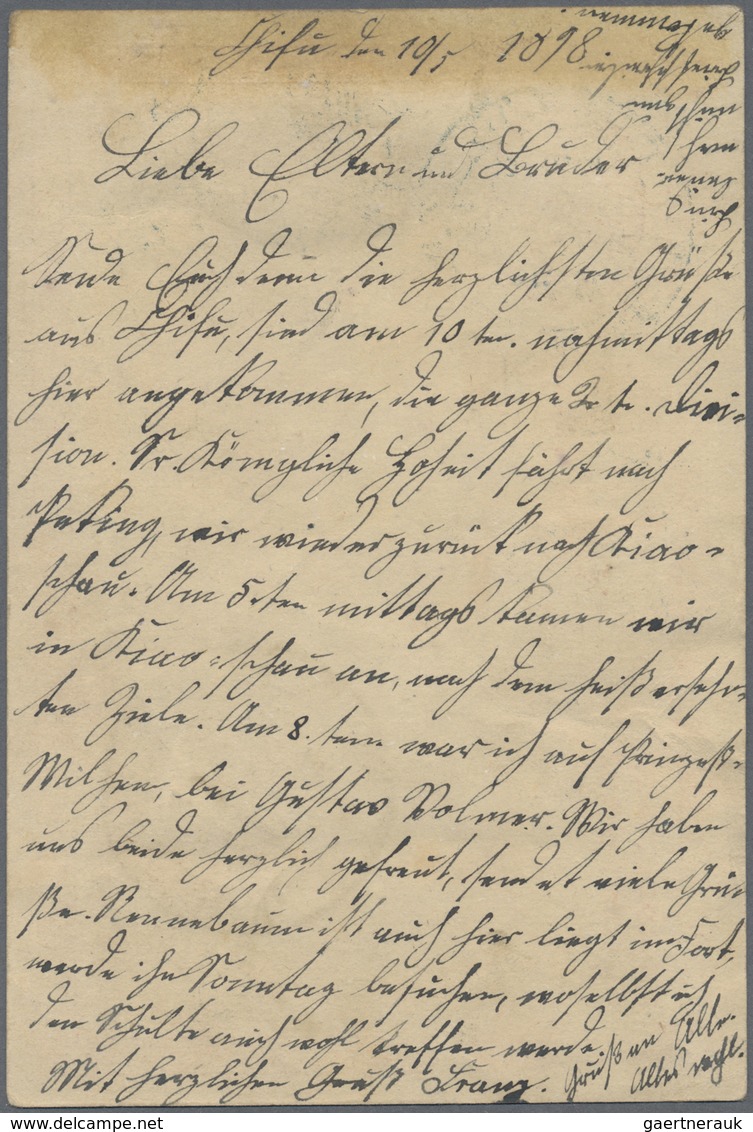 Chifu den 10/5 1898
Liebe Eltern und Bruder
Sende Euch denn die herzlichsten Grüße
aus Chifu, sind am 10 ten. nachmittags
hier angekommen, die ganze 2 te. Divi-
sion. Sr. Königliche Hoheit fährt nach
Peking, wir wieder zurück nach Kiao-
schau. Am 5. ten mittags kamen wir
in Kiao-schau an, nach dem heiß ersehn-
ten Ziele. Am 8. ten war ich auf Prinzeß-
Wilhem, bei Gustav Volmer. Wir haben
uns beide herzlich gefreut, sendet viele Grü-
ße. Rennebaum ist auch hier liegt im Fort,
werde ihn Sonntag besuchen, woselbst ich
den Schulte auch wohl treffen werde.
Mit herzlichen Gruß Franz. Gruß an Alle.
Alles wohl.
gaertnerauk